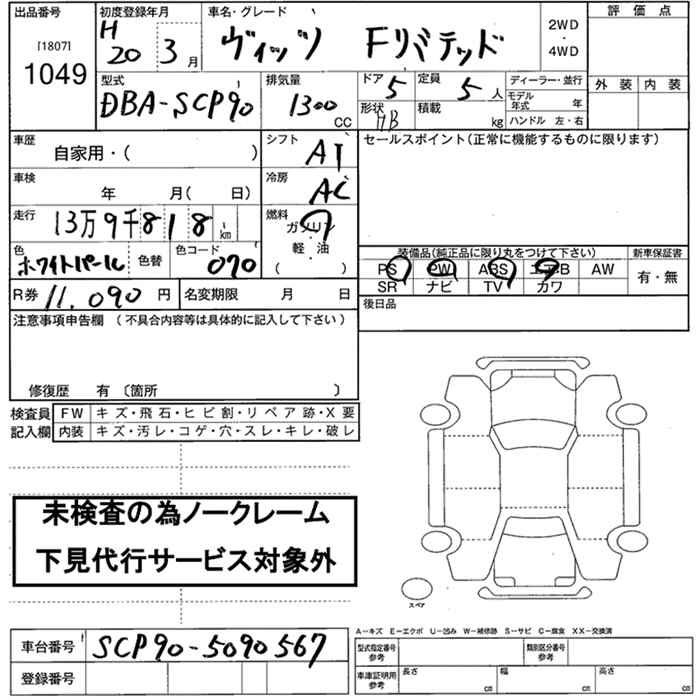 出品番号 初度登録年月 車名・グレード 評価点
[1807] H 2WD
1049 20 3月 ヴィッツ Fリミテッド ・ 4WD
型式 排気量 ドア 5 定員 5人 ディーラー・並行 外装 内装
DBA-SCP90 1300 CC 形状 HB 積載 kg モデル年式 年
ハンドル 左・右
車歴 自家用・( ) シフト AT セールスポイント(正常に機能するものに限ります)
車検 年 月( 日) 冷房 AC
走行 13万9千818km 燃料 ガソリン
軽・油
( )
色 ホワイトパール 色替 色コード 070 装備品(純正品に限り丸をつけて下さい) 新車保証書
PS PW ABS エアB AW 有・無
SR ナビ TV カワ
R券 11,090円 名変期限 月 日 後日品
注意事項申告欄 (不具合内容等は具体的に記入して下さい)
修復歴 有 〔箇所 〕
検査員 FW キズ・飛石・ヒビ割・リペア跡・X要
記入欄 内装 キズ・汚レ・コゲ・穴・スレ・キレ・破レ
未検査の為ノークレーム
下見代行サービス対象外
スペア
A-キズ E-エクボ U-凹み W-補修跡 S-サビ C-腐食 XX-交換済
車台番号 SCP90-5090567 型式指定番号 参考 類別区分番号 参考
登録番号 車庫証明用 参考 長さ cm 幅 cm 高さ cm